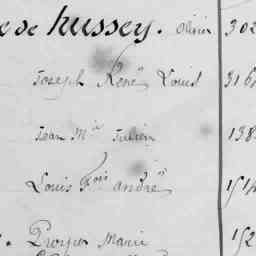 de hussey. Olivier 302
Joseph René Louis 316
Jean M.ie Julien 138
Louis F.ois andré 1514
Marie 152